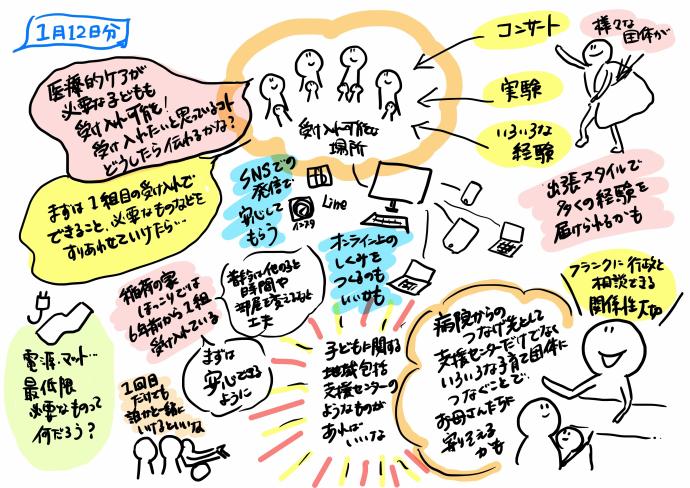 1月12日分
医療的ケアが
必要な子どもも
受け入れ可能!
受け入れたいと思っているコト
どうしたら伝わるかな?
受け入れ可能な
場所
コンサート
実験
いろいろな
経験
様々な
団体が
出張スタイルで
多くの経験を
届けられるかも
まずは1組目の受け入れで
できること、必要なものなどを
すりあわせていけたら…
SNSでの
発信で
安心して
もらう
Line
インスタ
オンライン上の
しくみを
つくるのも
いいかも
フランクに行政と
相談できる
関係性大切
稲荷の家
ほっこりでは
6年前から1組
受け入れている
時間や
部屋を変えるなど
工夫
まずは
安心できる
ように
電源、マット…
最低限
必要なものって
何だろう?
1回目
だけでも
誰かと一緒に
いけるといいな
子どもに関する
地域包括
支援センターの
ようなものが
あれば
いいな
病院からの
つなげ先として
支援センターだけでなく
いろいろな子育て団体に
つなぐことで
お母さんたちに
寄りそえる
かも